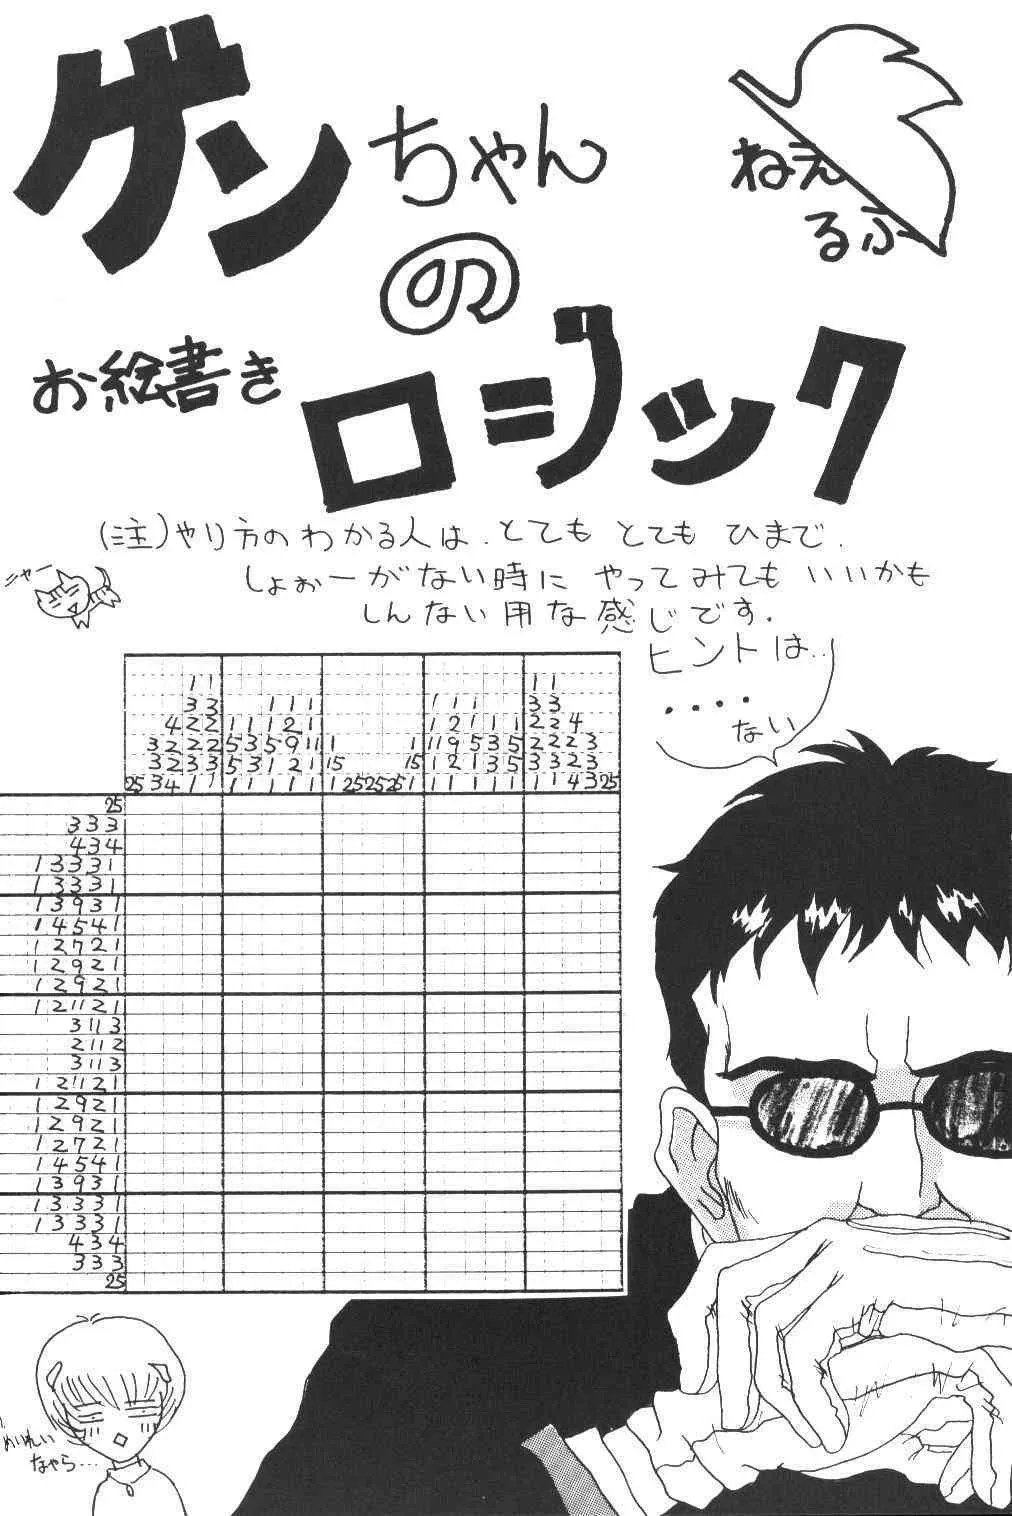 ゲンちゃん
の
お絵書き
ロジック
ねえ
るふ
(注)やり方のわかる人は、とても とても ひまで、
しょぉーがない時に やってみても いいかも
しんない用な感じです.
ニャー
ヒントは..
....
ない
1 1 1 1
3 3 1 1 1 1 1 1 3 3
4 2 2 1 1 1 2 1 1 2 1 1 1 2 2 4
3 2 2 2 5 3 5 9 11 1 1 11 9 5 3 5 2 2 2 3
3 2 3 3 5 3 1 2 1 15 15 1 2 1 3 5 3 3 2 3
25 3 4 1 1 1 1 1 1 1 1 25 25 25 1 1 1 1 1 1 1 1 4 3 25
25
3 3 3
4 3 4
1 3 3 3 1
1 3 3 3 1
1 3 9 3 1
1 4 5 4 1
1 2 7 2 1
1 2 9 2 1
1 2 9 2 1
1 2 11 2 1
3 11 3
2 11 2
3 11 3
1 2 11 2 1
1 2 9 2 1
1 2 9 2 1
1 2 7 2 1
1 4 5 4 1
1 3 9 3 1
1 3 3 3 1
1 3 3 3 1
4 3 4
3 3 3
25
めいれい
なゃら...